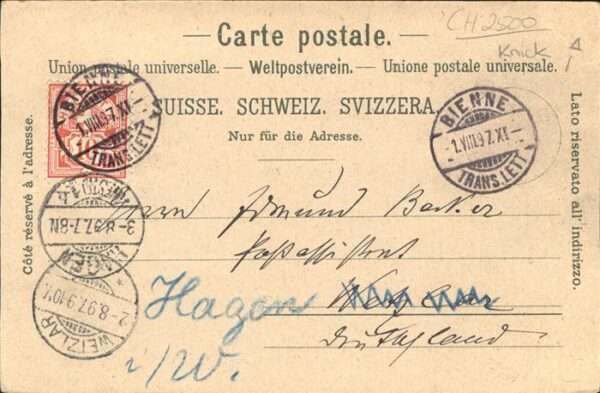 CH 2500
Knick
Carte postale.
Union postale universelle. — Weltpostverein. — Unione postale universale.
SUISSE. SCHWEIZ. SVIZZERA.
Nur für die Adresse.
Côté réservé à l'adresse.
Lato riservato all' indirizzo.
BIENNE
1.VIII.97.XI
TRANS.LETT
10
BIENNE
1.VIII.97.XI
TRANS.LETT
3-8.97.7-8N
2-8.97.9-10V
WETZLAR
Herrn Edmund Becker
Postassistent
Wetzlar
Hagen
Deutschland
i/W.